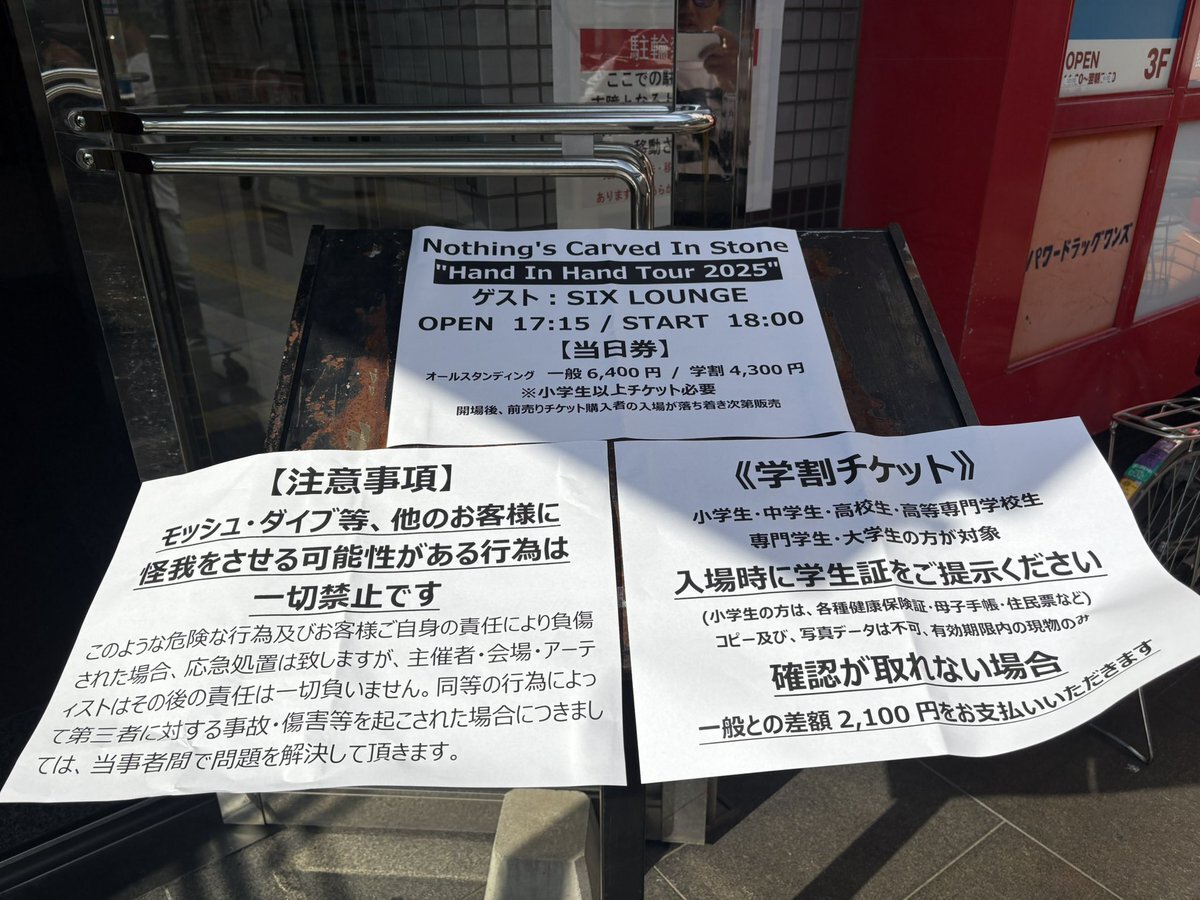 駐輪
ここでの駐
移動さ
あります
OPEN
3F
パワードラッグワンズ
Nothing's Carved In Stone
"Hand In Hand Tour 2025"
ゲスト：SIX LOUNGE
OPEN 17:15 / START 18:00
【当日券】
オールスタンディング 一般 6,400 円 / 学割 4,300 円
※小学生以上チケット必要
開場後、前売りチケット購入者の入場が落ち着き次第販売
【注意事項】
モッシュ・ダイブ等、他のお客様に
怪我をさせる可能性がある行為は
一切禁止です
このような危険な行為及びお客様ご自身の責任により負傷
された場合、応急処置は致しますが、主催者・会場・アーテ
ィストはその後の責任は一切負いません。同等の行為によっ
て第三者に対する事故・傷害等を起こされた場合につきまし
ては、当事者間で問題を解決して頂きます。
《学割チケット》
小学生・中学生・高校生・高等専門学校生
専門学生・大学生の方が対象
入場時に学生証をご提示ください
(小学生の方は、各種健康保険証・母子手帳・住民票など)
コピー及び、写真データは不可、有効期限内の現物のみ
確認が取れない場合
一般との差額 2,100 円をお支払いいただきます